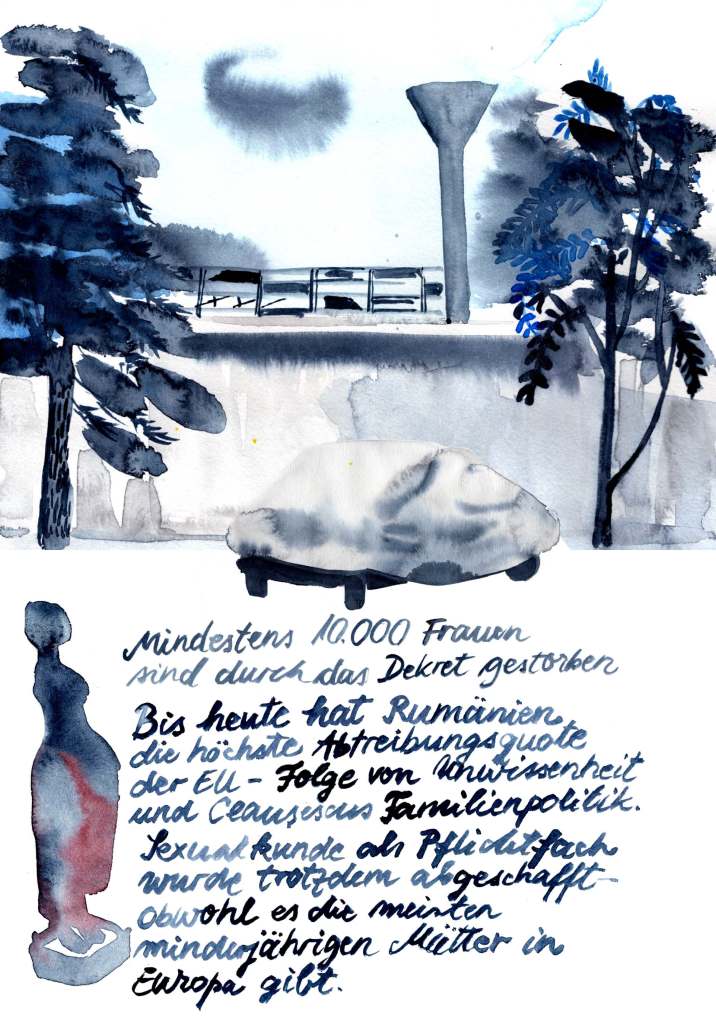 Mindestens 10.000 Frauen
sind durch das Dekret gestorben
Bis heute hat Rumänien
die höchste Abtreibungsquote
der EU - Folge von Unwissenheit
und Ceaușescus Familienpolitik.
Sexualkunde als Pflichtfach
wurde trotzdem abgeschafft -
obwohl es die meisten
minderjährigen Mütter in
Europa gibt.